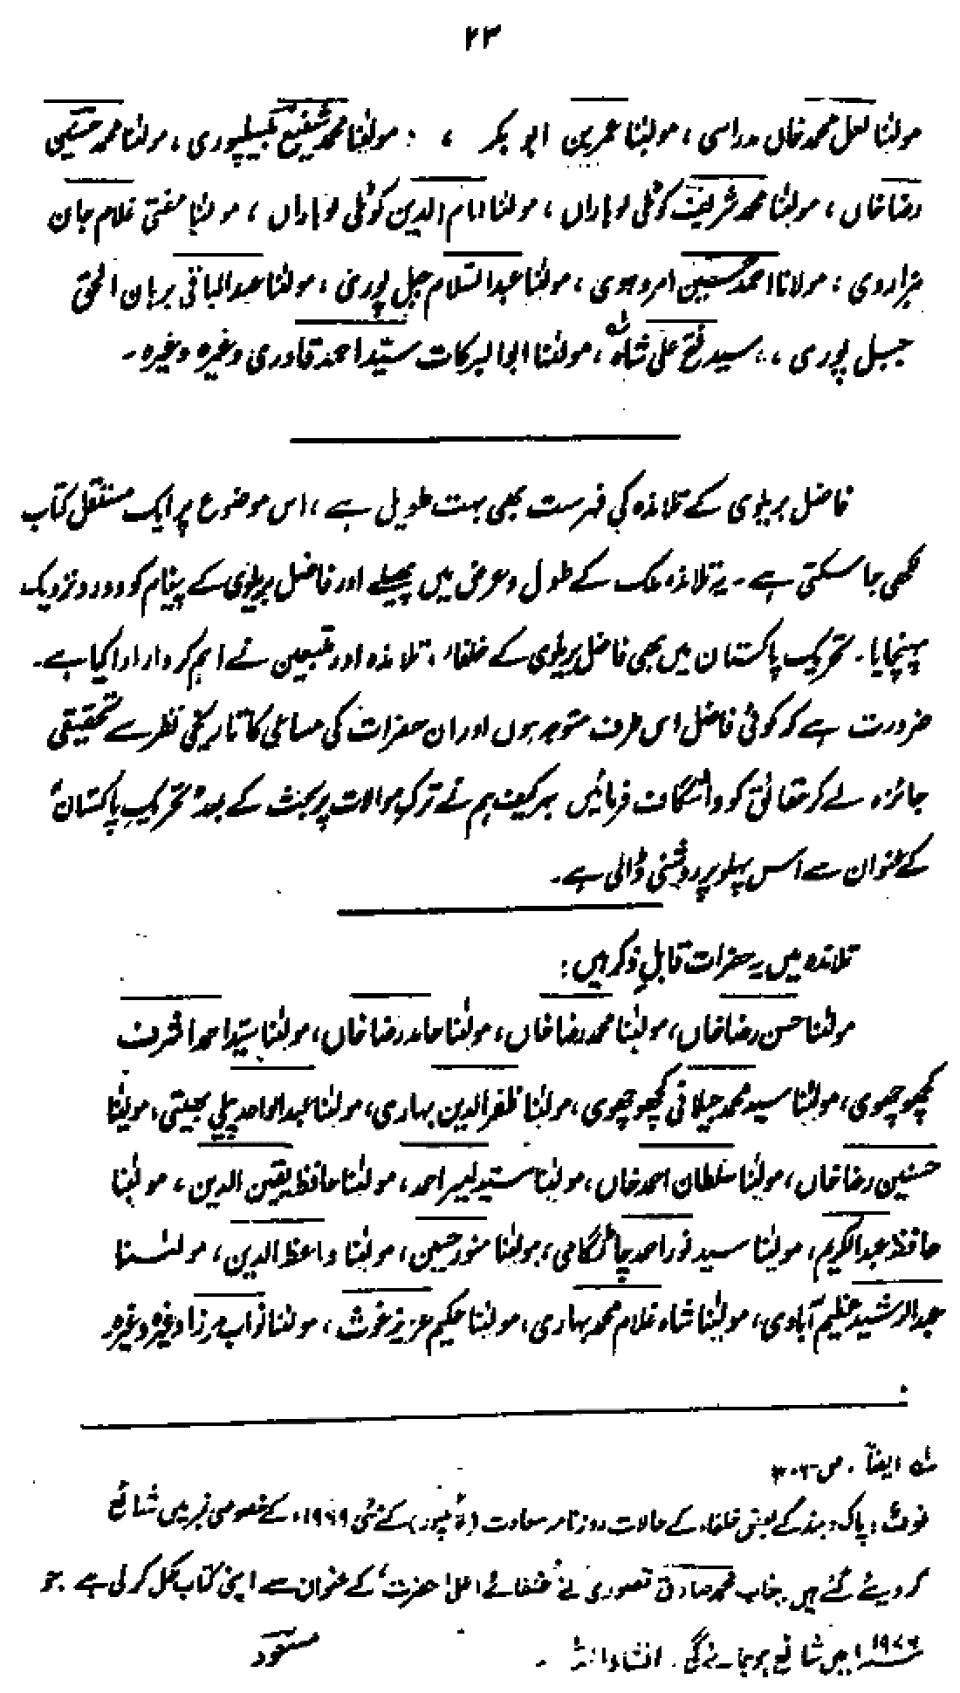 ۲۳
مولٰنا لعل محمد خاں مدراسی ، مولٰنا عمر بن ابو بکر ، : مولٰنا محمد شفیع بیسلپوری ، مولٰنا محمد حسنین
رضا خاں ، مولٰنا محمد شریف کوٹلی لوہاراں ، مولٰنا امام الدین کوٹلی لوہاراں ، مولٰنا مفتی غلام جان
ہزاروی ، مولانا احمد حسین امروہوی ، مولٰنا عبدالسلام جبل پوری ، مولٰنا عبدالباقی برہان الحق
جبل پوری ، سید فتح علی شاہ ، مولٰنا ابوالبرکات سیّد احمد قادری وغیرہ وغیرہ ۔
فاضل بریلوی کے تلامذہ کی فہرست بھی بہت طویل ہے ، اس موضوع پر ایک مستقل کتاب
لکھی جا سکتی ہے ۔ یہ تلامذہ ملک کے طول و عرض میں پھیلے اور فاضل بریلوی کے پیغام کو دور و نزدیک
پہنچایا ۔ تحریک پاکستان میں بھی فاضل بریلوی کے خلفاء ، تلامذہ اور متبعین نے اہم کردار ادا کیا ہے ۔
ضرورت ہے کہ کوئی فاضل اس طرف متوجہ ہوں اور ان حضرات کی مساعی کا تاریخی نظر سے تحقیقی
جائزہ لے کر حقائق کو واشگاف فرمائیں بہر کیف ہم نے ترکِ موالات پر بحث کے بعد "تحریکِ پاکستان"
کے عنوان سے اس پہلو پر روشنی ڈالی ہے ۔
تلامذہ میں یہ حضرات قابلِ ذکر ہیں :
مولٰنا حسن رضا خاں ، مولٰنا محمد رضا خاں ، مولٰنا حامد رضا خاں ، مولٰنا سیّد احمد اشرف
کچھوچھوی ، مولٰنا سید محمد جیلانی کچھوچھوی ، مولٰنا ظفر الدین بہاری ، مولٰنا عبدالواحد پیلی بھیتی ، مولٰنا
حسنین رضا خاں ، مولٰنا سلطان احمد خاں ، مولٰنا سید امیر احمد ، مولٰنا حافظ یقین الدین ، مولٰنا
حافظ عبدالکریم ، مولٰنا سید نور احمد چاٹگامی ، مولٰنا منور حسین ، مولٰنا واعظ الدین ، مولٰنا
عبدالرشید عظیم آبادی ، مولٰنا شاہ غلام محمد بہاری ، مولٰنا حکیم عزیز غوث ، مولٰنا نواب مرزا وغیرہ وغیرہ ۔
ایضاً ، ص ۳۰۲
نوٹ : پاک و ہند کے بعض خلفاء کے حالات روزنامہ سعادت (لائلپور) کے مئی ۱۹۶۹ء کے خصوصی نمبر میں شائع
کر دیئے گئے ہیں جناب محمد صادق قصوری نے "خلفائے اعلیٰ حضرت" کے عنوان سے اپنی کتاب مکمل کر لی ہے جو
میں شائع ہو جائے گی ۔ انشاء اللہ ۔ مسعود